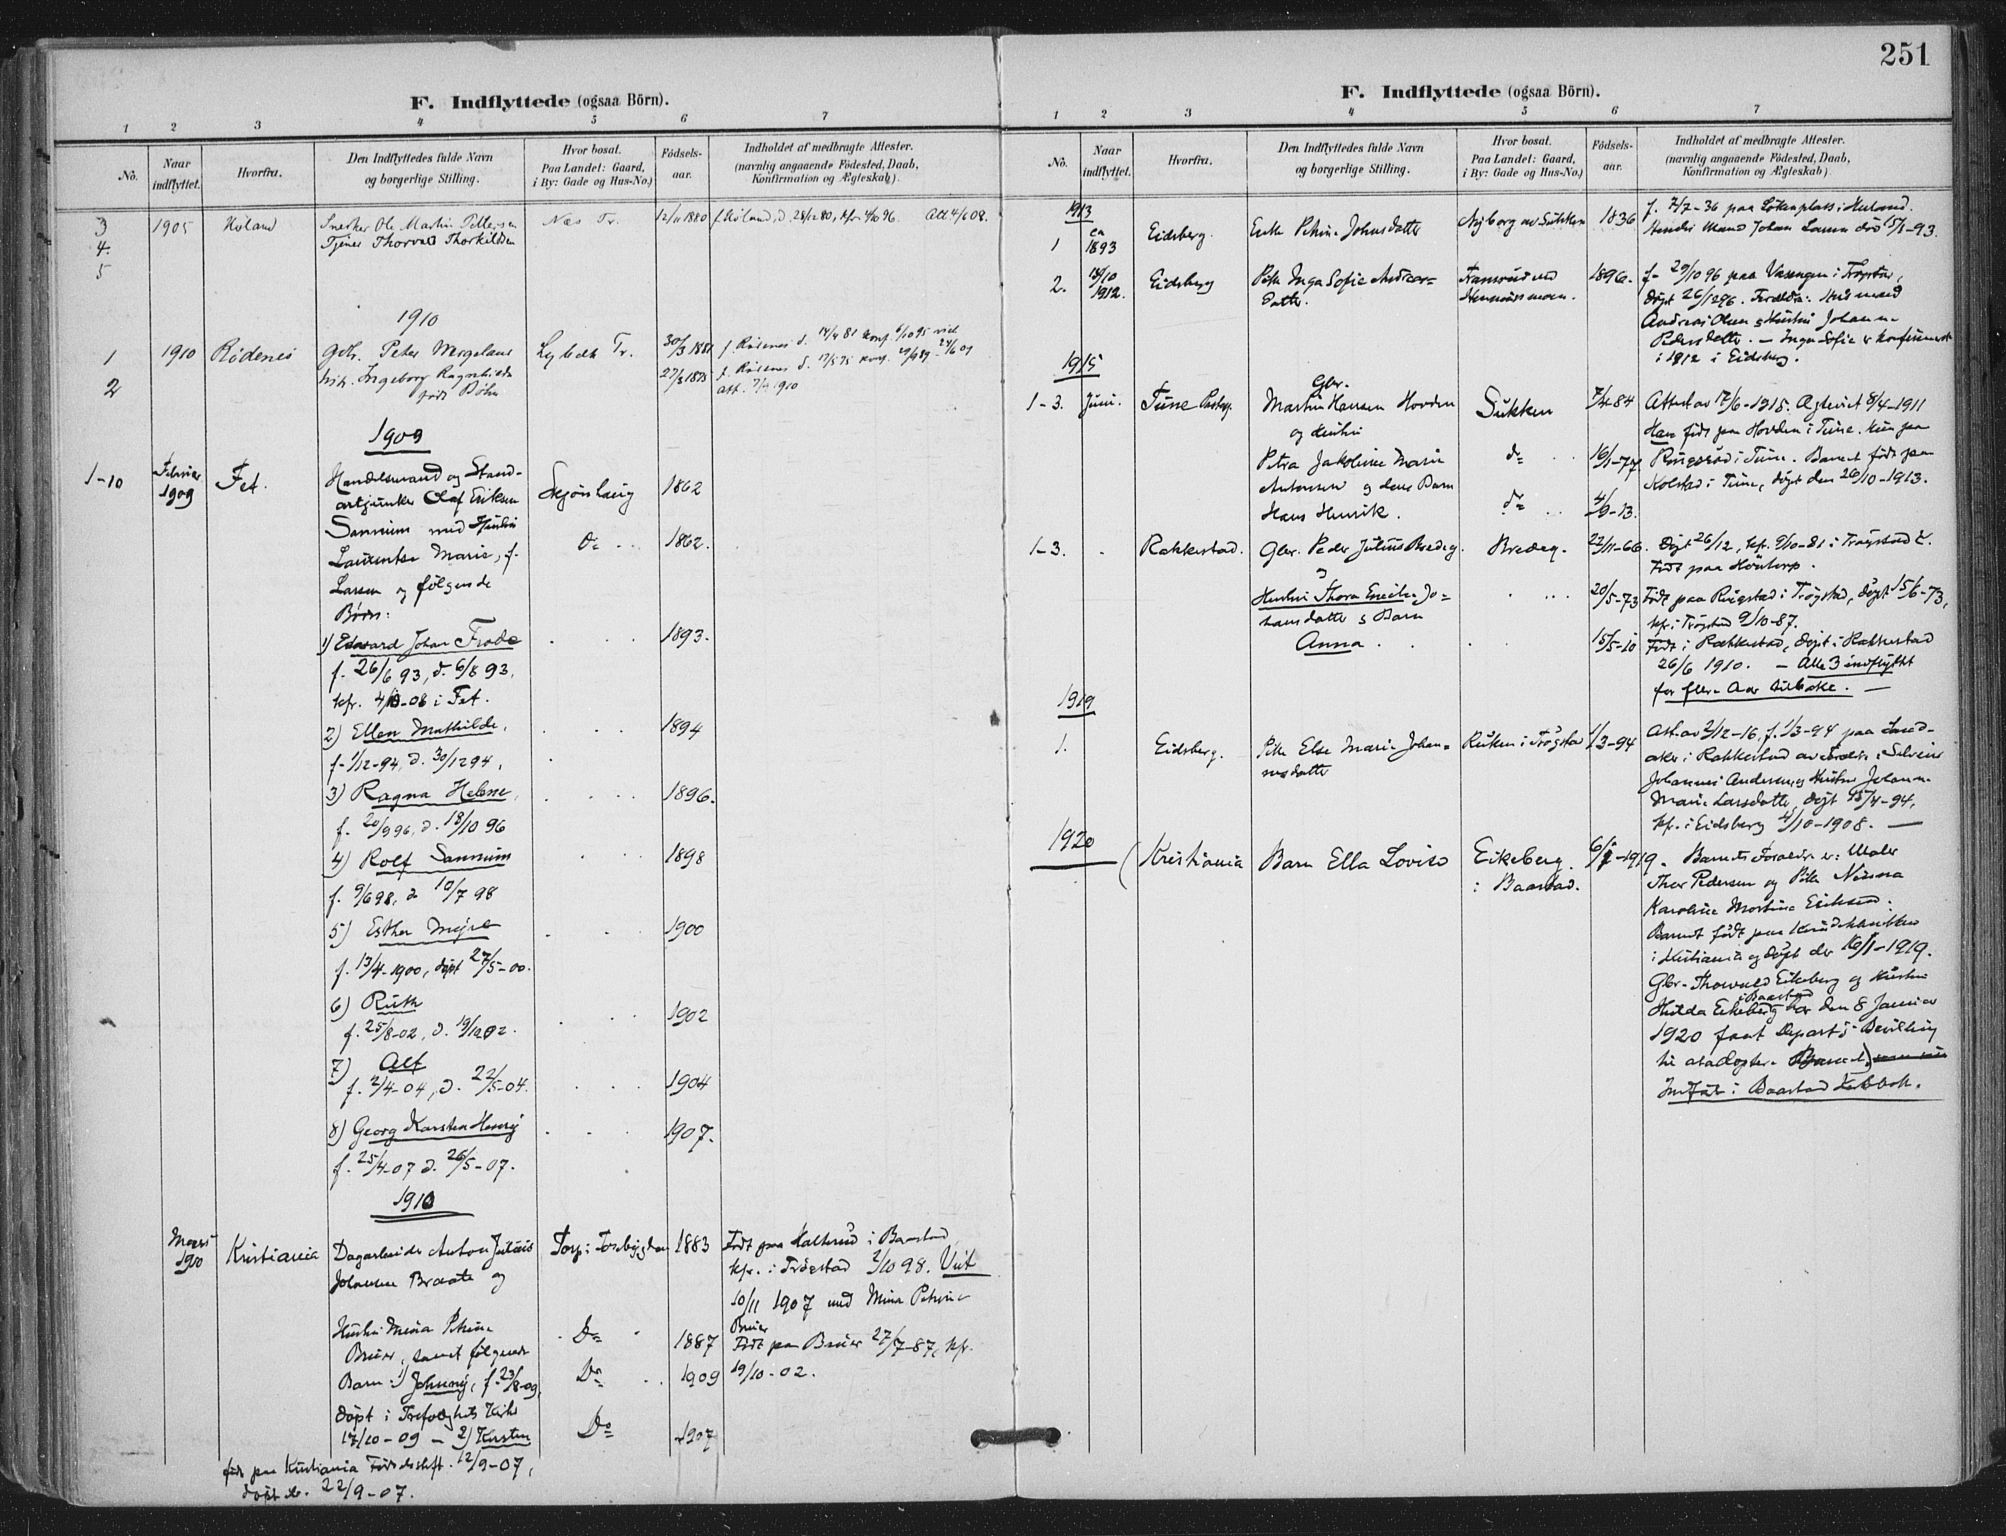 251
F. Indflyttede (ogsaa Börn).
1 2 3 4 5 6 7
No. Naar indflyttet. Hvorfra. Den Indflyttedes fulde Navn og borgerlige Stilling. Hvor bosat. Paa Landet: Gaard, i By: Gade og Hus-No.) Födsels-aar. Indholdet af medbragte Attester. (navnlig angaaende Födested, Daab, Konfirmation og Ægteskab).
3 1905 Höland Snedker Ole Martin Pettersen Næs Tr. 12/11 1880 f. Höland, d. 28/12 80, kfr. 4/10 96. Att 4/6 08.
4. Tjener Thorvald Thorkildsen
5
1910
1 1910 Rödenes Peter Wergeland Tr. 30/3 1881 f. Rödenes d.
2 Ingeborg Ragnhild 27/3 1875 f. Rödenes d. 17/5 75
födt Böhn att. 1910
1909
1-10 Februar 1909 Fet. Handelsmand og Stand-
artjunker Olaf Eriksen Skjönhaug 1862
Sannum med Hustru
Laurentse Marie, f. Do 1862.
Larsen og følgende
Börn:
1) Edvard Johan Frode 1893.
f. 26/6 93, d. 6/8 93,
kfr. 4/10-08 i Fet.
2) Ellen Mathilde, 1894
f. 1/12-94, d. 30/12 94,
3) Ragna Helene, 1896.
f. 20/9 96, d. 18/10 96
4) Rolf Sannum 1898
f. 9/6 98, d 10/7 98
5) Esther 1900
f. 13/4-1900, döpt 27/5-00.
6) Ruth 1902
f. 25/8-02, d. 19/10 02.
7) Alf
f. 2/4-04, d. 22/5-04. 1904
8) Georg Karsten Henry 1907.
f. 25/4-07 d. 26/5-07.
1910
Marts 1910 Kristiania Dagarbeider Anton Julius Torp i Tosebygden 1883 Födt paa Kallerud i Baastad,
Johansen Braate og kfr. i Trögstad 2/10 98. Viet
10/11 1907 med Mina Petrine
Hustru Mina Petrine Do 1887 Bruer
Bruer, samt følgende Födt paa Bruer 27/7-87, kfr.
Barn: 1) Johnny, f. 23/8-09, Do 1909 19/10-02.
döpt i Trefoldigheds Kirke
17/10-09 – 2) Kirsten Do 1907
född paa Kristiania Födselsstift. 12/9-07,
döpt do. 22/9-07.
F. Indflyttede (ogsaa Börn).
1 2 3 4 5 6 7
No. Naar indflyttet. Hvorfra. Den Indflyttedes fulde Navn og borgerlige Stilling. Hvor bosat. Paa Landet: Gaard, i By: Gade og Hus-No.) Födsels-aar. Indholdet af medbragte Attester. (navnlig angaaende Födested, Daab, Konfirmation og Ægteskab).
1913
1 ca 1893 Eidsberg. Enke Petrine Johnsdatter Nyborg av Sukken 1836 f. 7/7-36 paa Lökenplads i Höland.
Hendes Mand Johan Larsen död 15/1-93.
2. 13/10 1912. Eidsberg Pike Inga Sofie Andreas-datter. 1896. f. 29/10 96 paa Vasengen i Trögstad,
döpt 26/12 96. Forældre: Husmand
Andreas Olsen og Hustru Johanne
Pedersdatter. – Inga Sofie er konfirmeret
i 1912 i Eidsberg.
1915
1-3. Juni. Tune Gbr. Martin Hansen Hovden Sukken 7/4-84 Attest av 17/6-1915. Ægteviet 8/4-1911
og Hustru Han födt paa Hovden i Tune. Hun paa
Petra Jakobine Marie do 16/1-77 i Tune. Barnet födt paa
Antonsen og deres Barn Kolstad i Tune, döpt den 26/10-1913.
Hans Henrik. do 4/9-13.
1-3. Rakkestad. Gbr. Peder Julius Bredeg. Bredeg. 22/11-66. Döpt 26/12, kfr. 9/10-81 i Trögstad K.
og Födt paa Höntorp.
Hustru Thora Emilie Jo= 20/5-73 Födt paa Ringstad i Trögstad, döpt 15/6-73,
hansdatter og Barn kfr. i Trögstad 9/10-87.
Anna 15/5-10 Födt i Rakkestad, döpt i Rakkestad
26/6 1910. – Alle 3 indflyttet
for flere Aar tilbake. –
1919
1. Eidsberg. Pike Else Marie Johan= Ruken i Trögstad 1/3-94 Att. av 2/12-16, f. 1/3-94 paa
nesdatter i Rakkestad av Forældre: Selveier
Johannes Andersen og Hustru Johanne
Marie Larsdatter, döpt 15/4-94,
kfr. i Eidsberg 4/10-1908. –
1920
Kristiania Barn Ella Lovise Eikeberg i Baastad. 6/1-1919. Barnets Forældre er: Maler
Thor Pedersen og Pike
Karoline Martine Eriksen.
Barnet födt paa Kvindeklinikken
i Kristiania og döpt der 16/1-1919.
Gbr. Thorvald Eikeberg og Hustru
Hilda Eikeberg i Baastad har den 8 Januar
1920 faat Departs Bevilling
til at adoptere Barnet,
Indfört i Baastad Kirkebok.